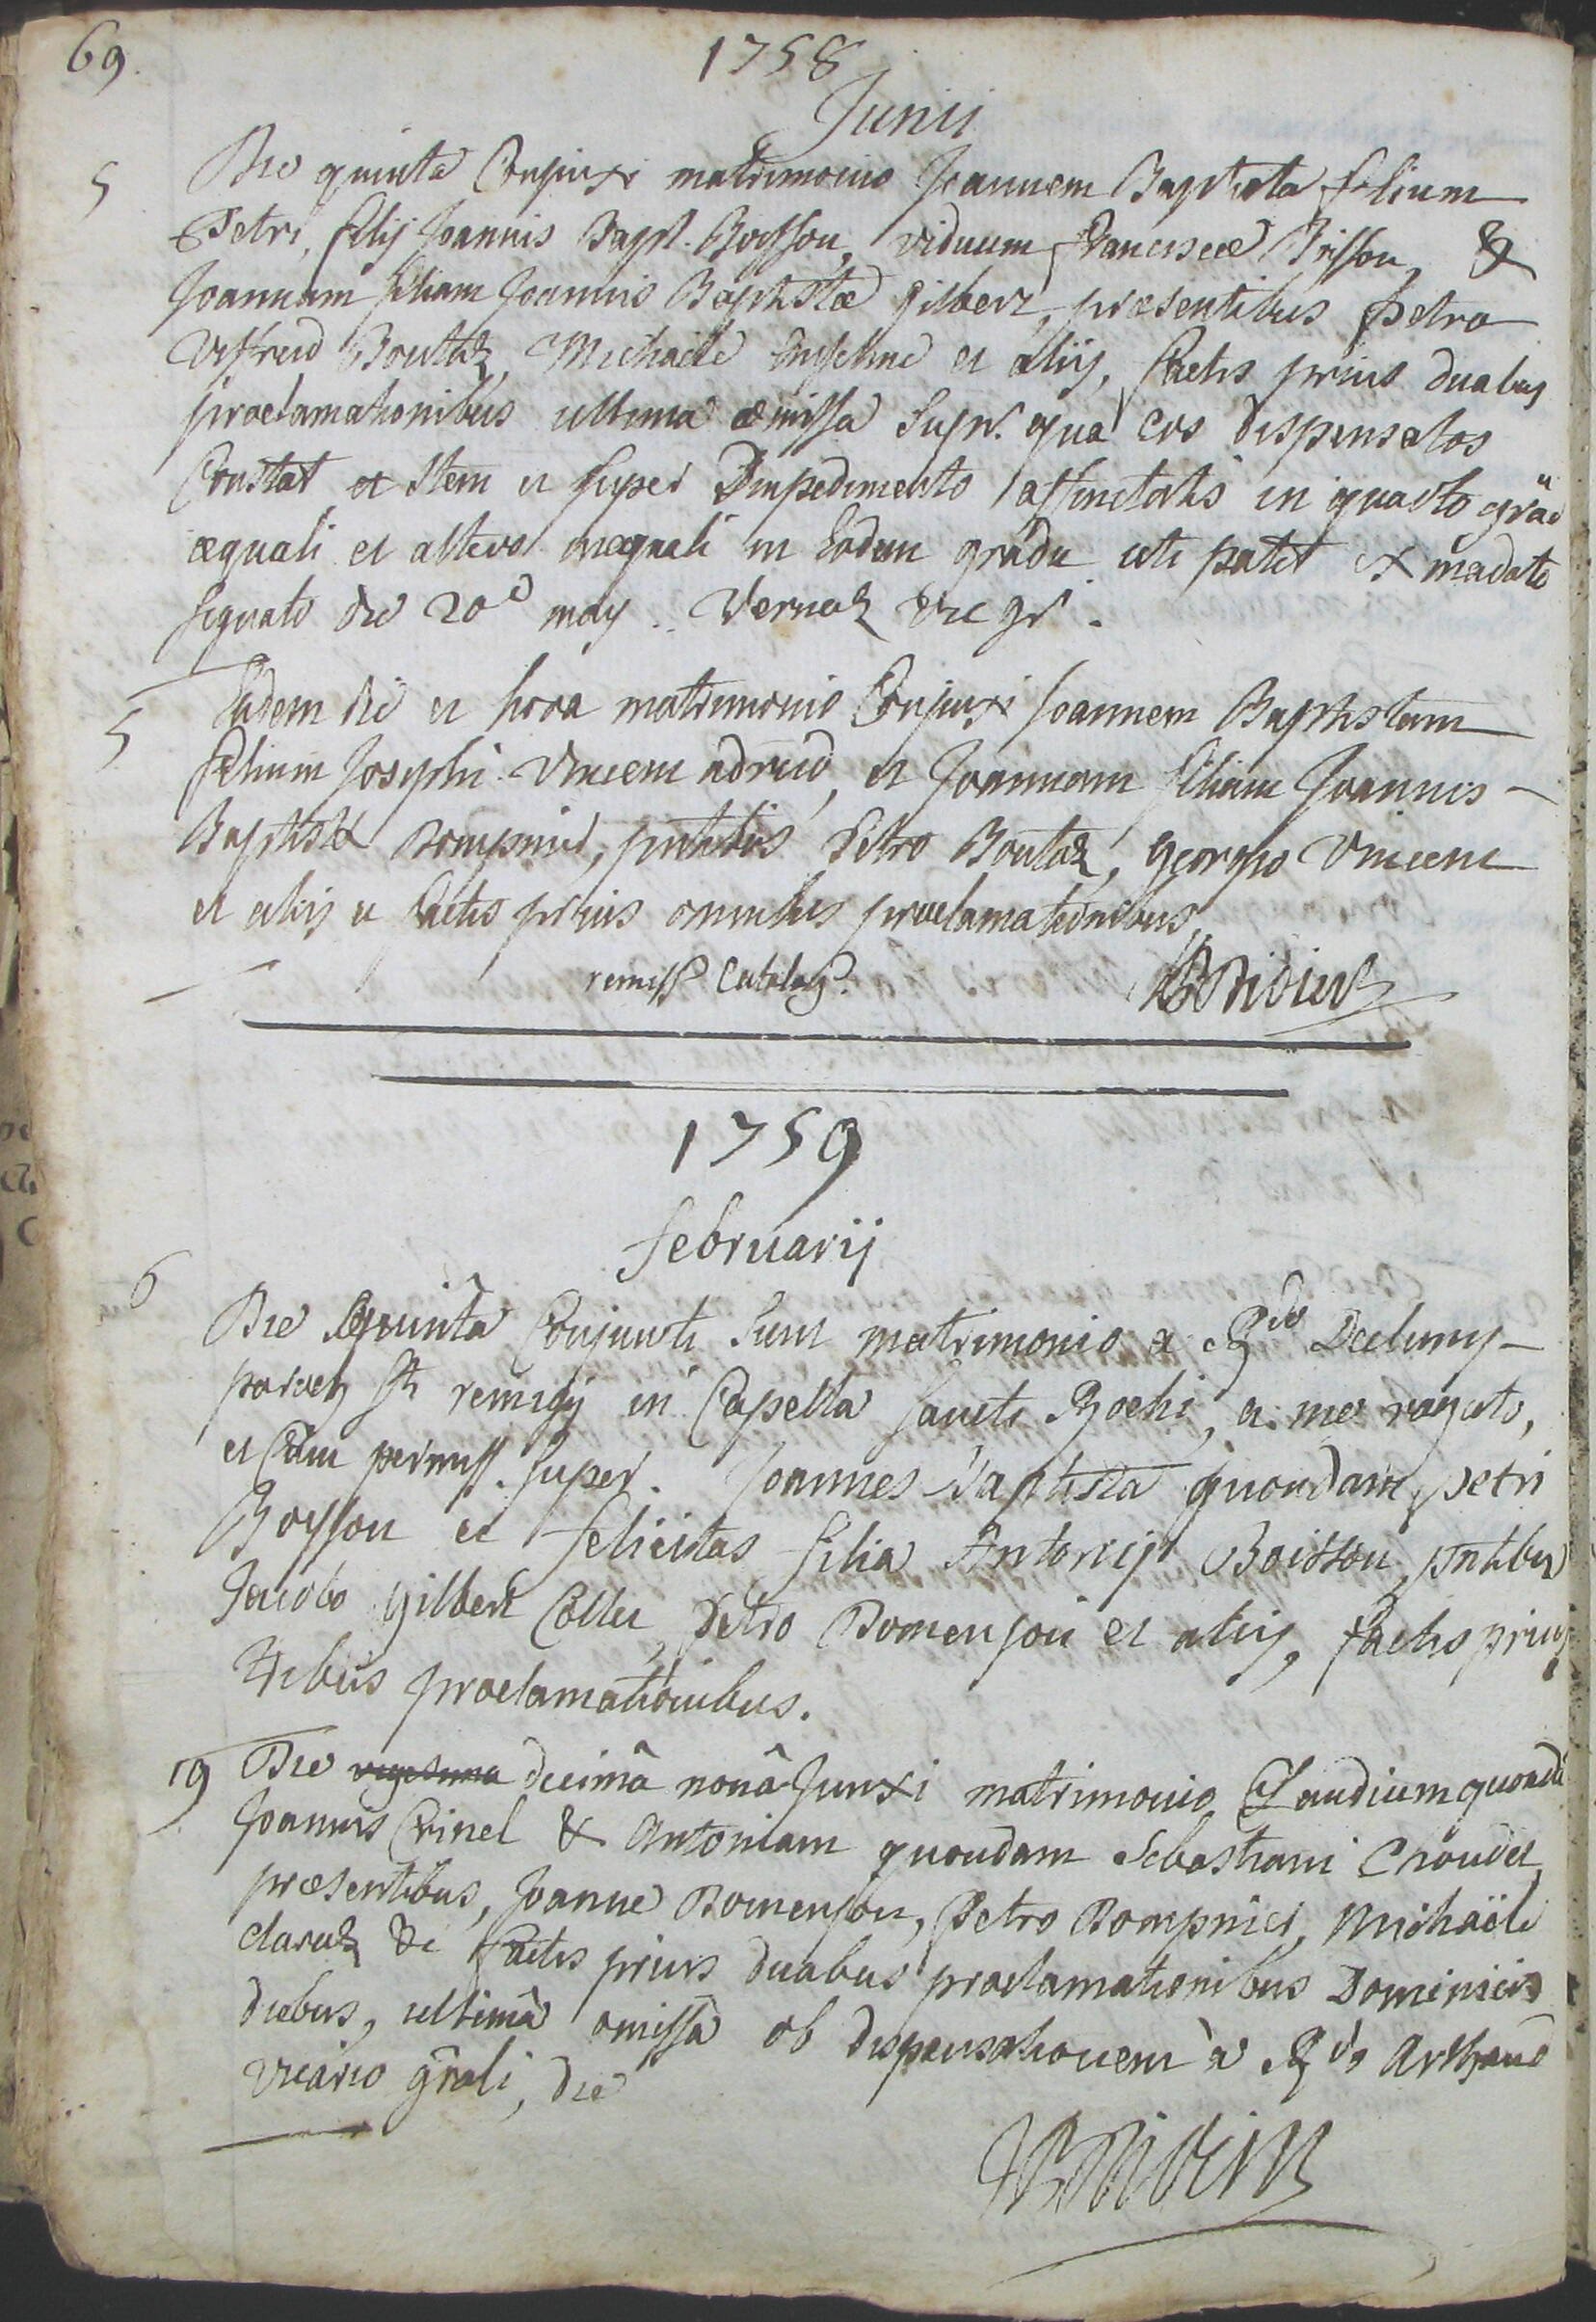 69.
1758
Junii
5 Die quinta Conjunxi matrimonio Joannem Baptista filium
Petri, filij Joannis Bapt. Boysson, viduum Franciscæ Brisson, &
Joannam filiam Joannis Baptistæ Gilbert, præsentibus Petro
Boutaz, Michaële Anselme et alijs, factis prius duabus
proclamationibus ultima omissa supr. qua eos dispensatos
Constat et Item et super Impedimento affinitatis in quarto grãu
æquali et altero inæquali in Eodem gradu uti patet ex mãdato
signato die 20ª maij. Vernaz vic gr̃.
5 Eadem die et hora matrimonio Conjunxi Joannem Baptistam
filium Josephi Vincent adrué, et Joannam filiam Joannis
Baptistæ Dompmier, pñtibus Petro Boutaz, georgio Vincent
et alijs et factis prius omnibus proclamationibus.
remiss. Catalog.
1759
februarij
6 Die quintâ Conjuncti sunt matrimonio a Rdo Decluny
paroch sti remigij in Capella sancti Rochi, a me rogato,
et Cum permiss. super. Joannes Baptista quondam petri
Boysson et felicitas filia Antonij Boisson, pñtibus
Jacobo Gilbert Collet, Petro Domenjon et alijs, factis prius
tribus proclamationibus.
19 Die vigesima decimâ nonâ Junxi matrimonio Claudium quondã
Joannis Crinel & Antoniam quondam Sebastiani Choudet
præsentibus, Joanne Domenjon, Petro Dompmier, Michaële
claraz &c factis prius duabus proclamationibus Dominicis
diebus, ultimâ omissâ ob dispensationem à Rdo Arthaud
vicario gñali, die